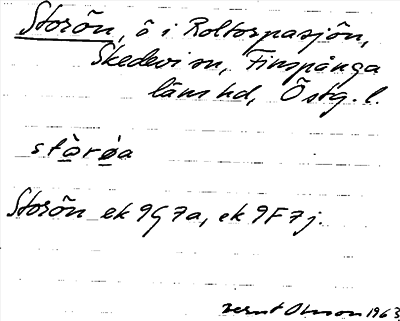 Storön, ö i Roltorpasjön,
Skedevi sn, Finspånga
läns hd, Östg. l.
stòrø̀a
Storön ek 9G7a, ek 9F7j.
Bernt Olsson 1963